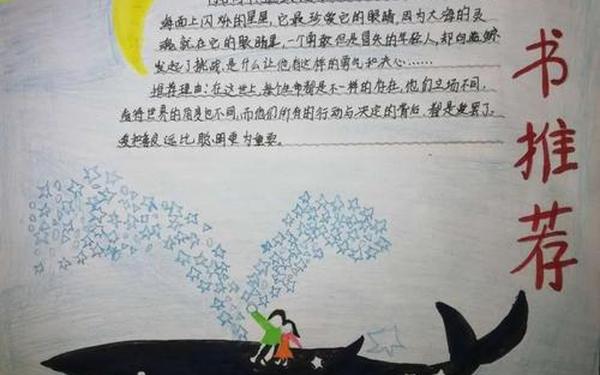 海面上闪烁的星星,它最珍爱它的眼睛,因为大海的灵
魂就在它的眼睛里,一个勇敢但是冒失的年轻人,却向
发起了挑战,是什么让他有这样的勇气和决心……
推荐理由:在这世上,每个生命都是不一样的存在,他们立场不同,
看待世界的角度也不同,而他们所有的行动与决定的背后,都是爱罢了。
爱和善良远比聪明更为重要。
书推荐